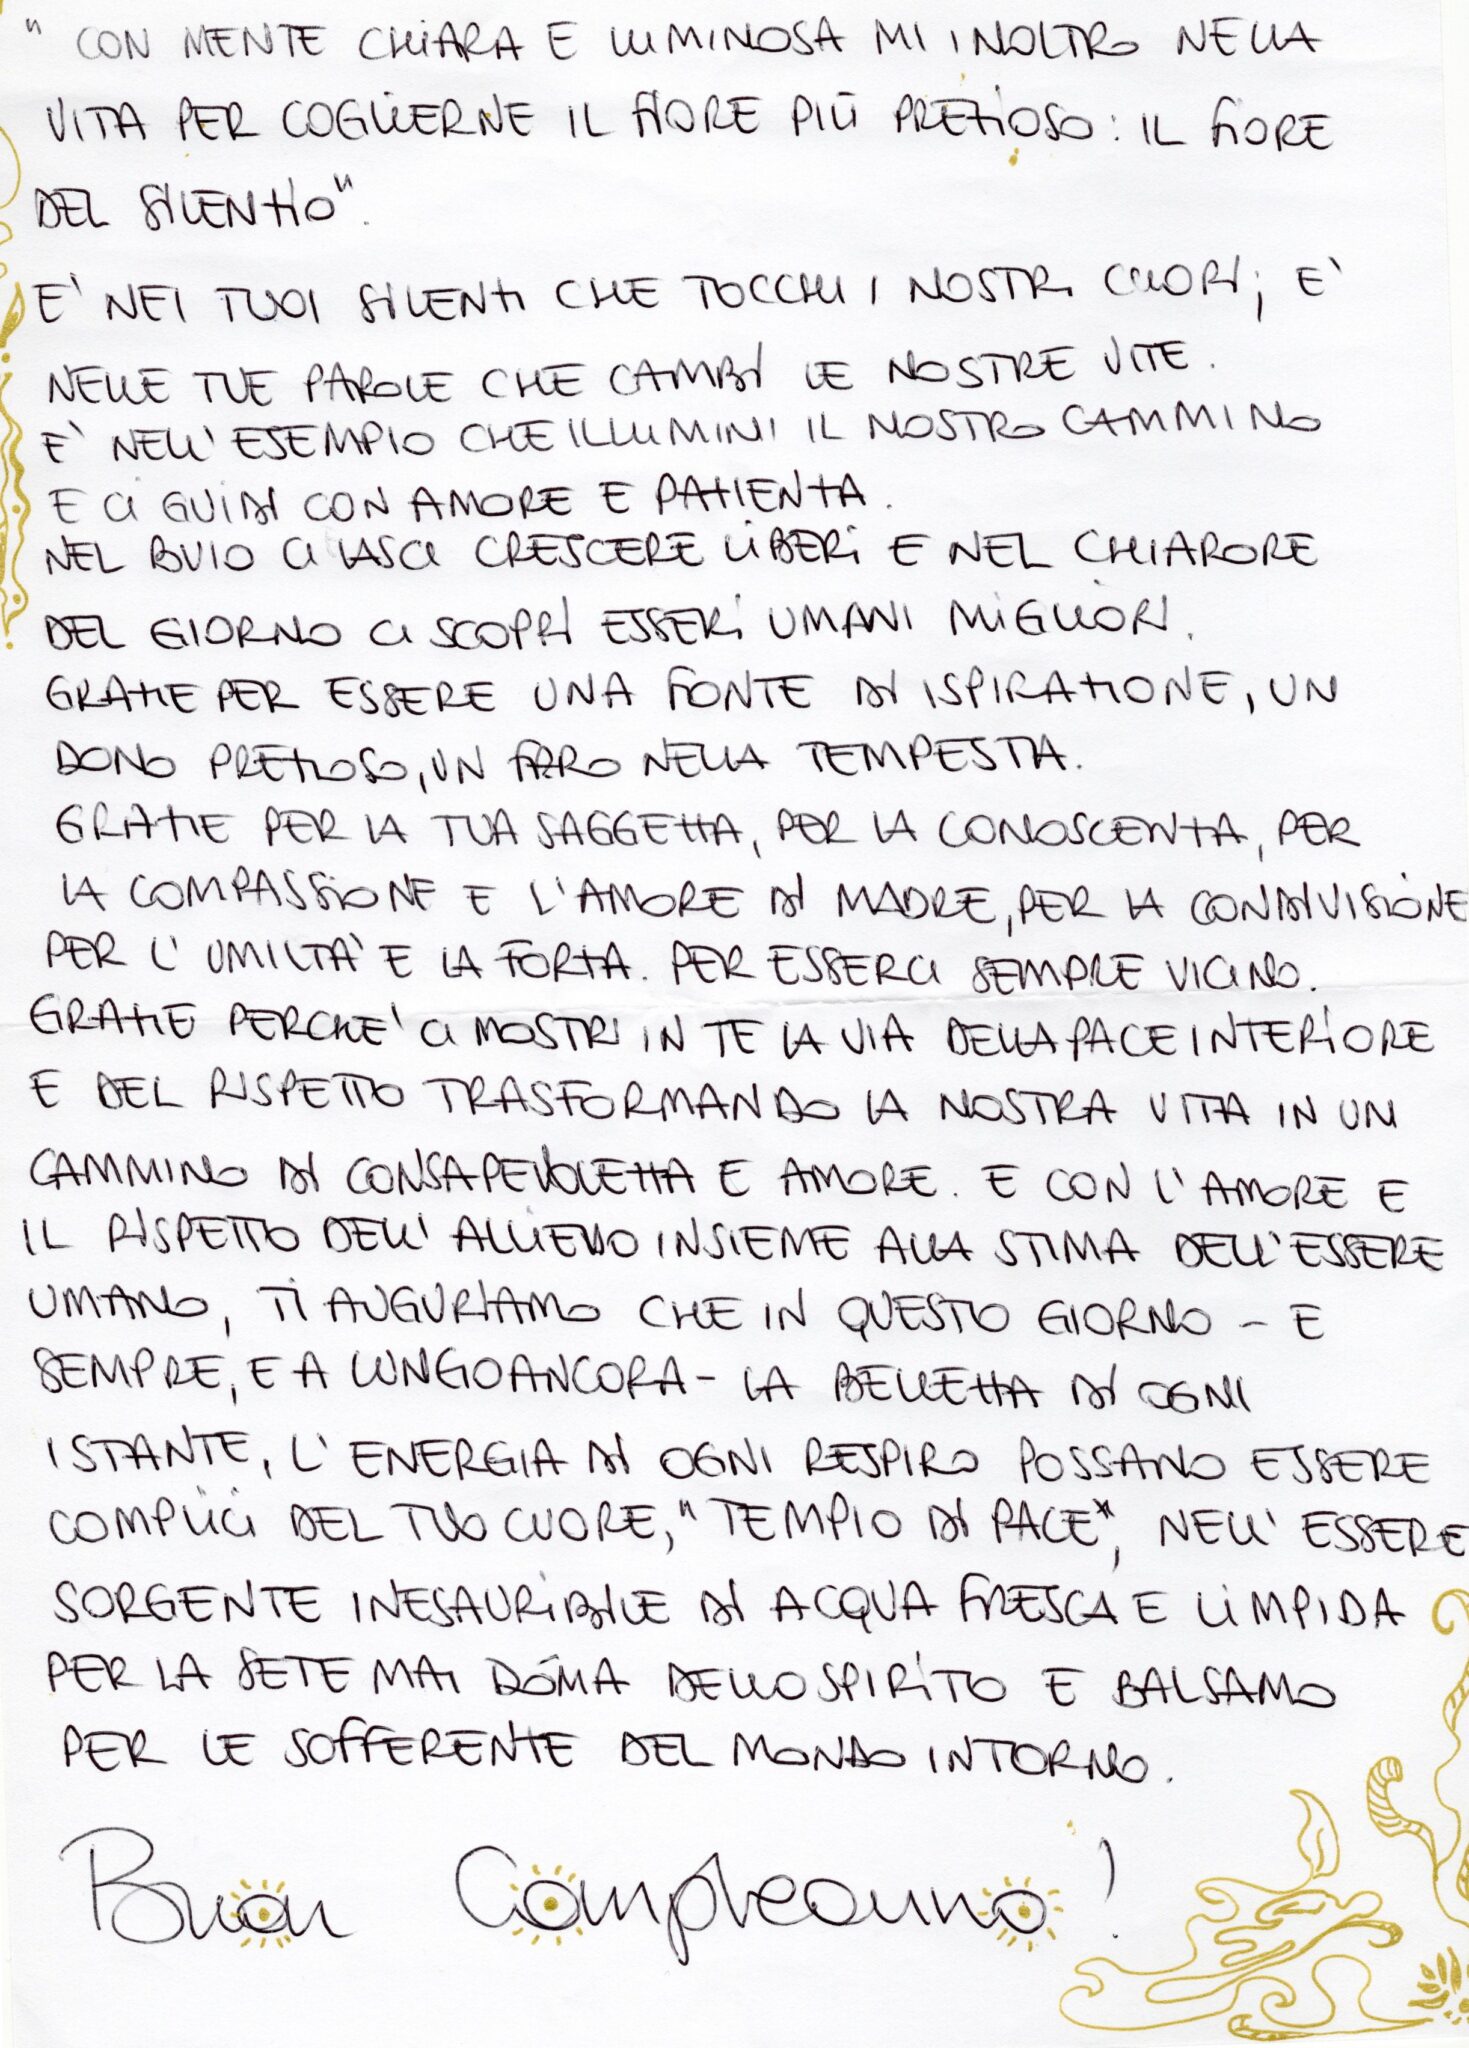 " CON MENTE CHIARA E LUMINOSA MI INOLTRO NELLA
VITA PER COGLIERNE IL FIORE PIÙ PREZIOSO: IL FIORE
DEL SILENZIO".
E' NEI TUOI SILENZI CHE TOCCHI I NOSTRI CUORI; E'
NELLE TUE PAROLE CHE CAMBI LE NOSTRE VITE.
E' NELL'ESEMPIO CHE ILLUMINI IL NOSTRO CAMMINO
E CI GUIDI CON AMORE E PAZIENZA.
NEL BUIO CI LASCI CRESCERE LIBERI E NEL CHIARORE
DEL GIORNO CI SCOPRI ESSERI UMANI MIGLIORI.
GRAZIE PER ESSERE UNA FONTE DI ISPIRAZIONE, UN
DONO PREZIOSO, UN FARO NELLA TEMPESTA.
GRAZIE PER LA TUA SAGGEZZA, PER LA CONOSCENZA, PER
LA COMPASSIONE E L'AMORE DI MADRE, PER LA CONDIVISIONE
PER L'UMILTA' E LA FORZA. PER ESSERCI SEMPRE VICINO.
GRAZIE PERCHE' CI MOSTRI IN TE LA VIA DELLA PACE INTERIORE
E DEL RISPETTO TRASFORMANDO LA NOSTRA VITA IN UN
CAMMINO DI CONSAPEVOLEZZA E AMORE. E CON L'AMORE E
IL RISPETTO DELL'ALLIEVO INSIEME ALLA STIMA DELL'ESSERE
UMANO, TI AUGURIAMO CHE IN QUESTO GIORNO - E
SEMPRE, E A LUNGO ANCORA - LA BELLEZZA DI OGNI
ISTANTE, L'ENERGIA DI OGNI RESPIRO POSSANO ESSERE
COMPLICI DEL TUO CUORE, "TEMPIO DI PACE", NELL'ESSERE
SORGENTE INESAURIBILE DI ACQUA FRESCA E LIMPIDA
PER LA SETE MAI DOMA DELLO SPIRITO E BALSAMO
PER LE SOFFERENTE DEL MONDO INTORNO.
Buon Compleanno!